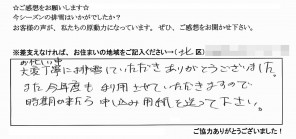 ☆ご感想をお願いします☆
今シーズンの排雪はいかがでしたか?
お客様の声が、私たちの原動力になっています。ぜひ、ご感想をお聞かせ下さい。
※差支えなければ、お住まいの地域をご記入ください→(北区)
お忙しい中
大変丁寧に排雪していただきありがとうございました。
また今年度も利用させていただきますので
時期が来たら申し込み用紙を送って下さい。
ご協力ありがとうございました!